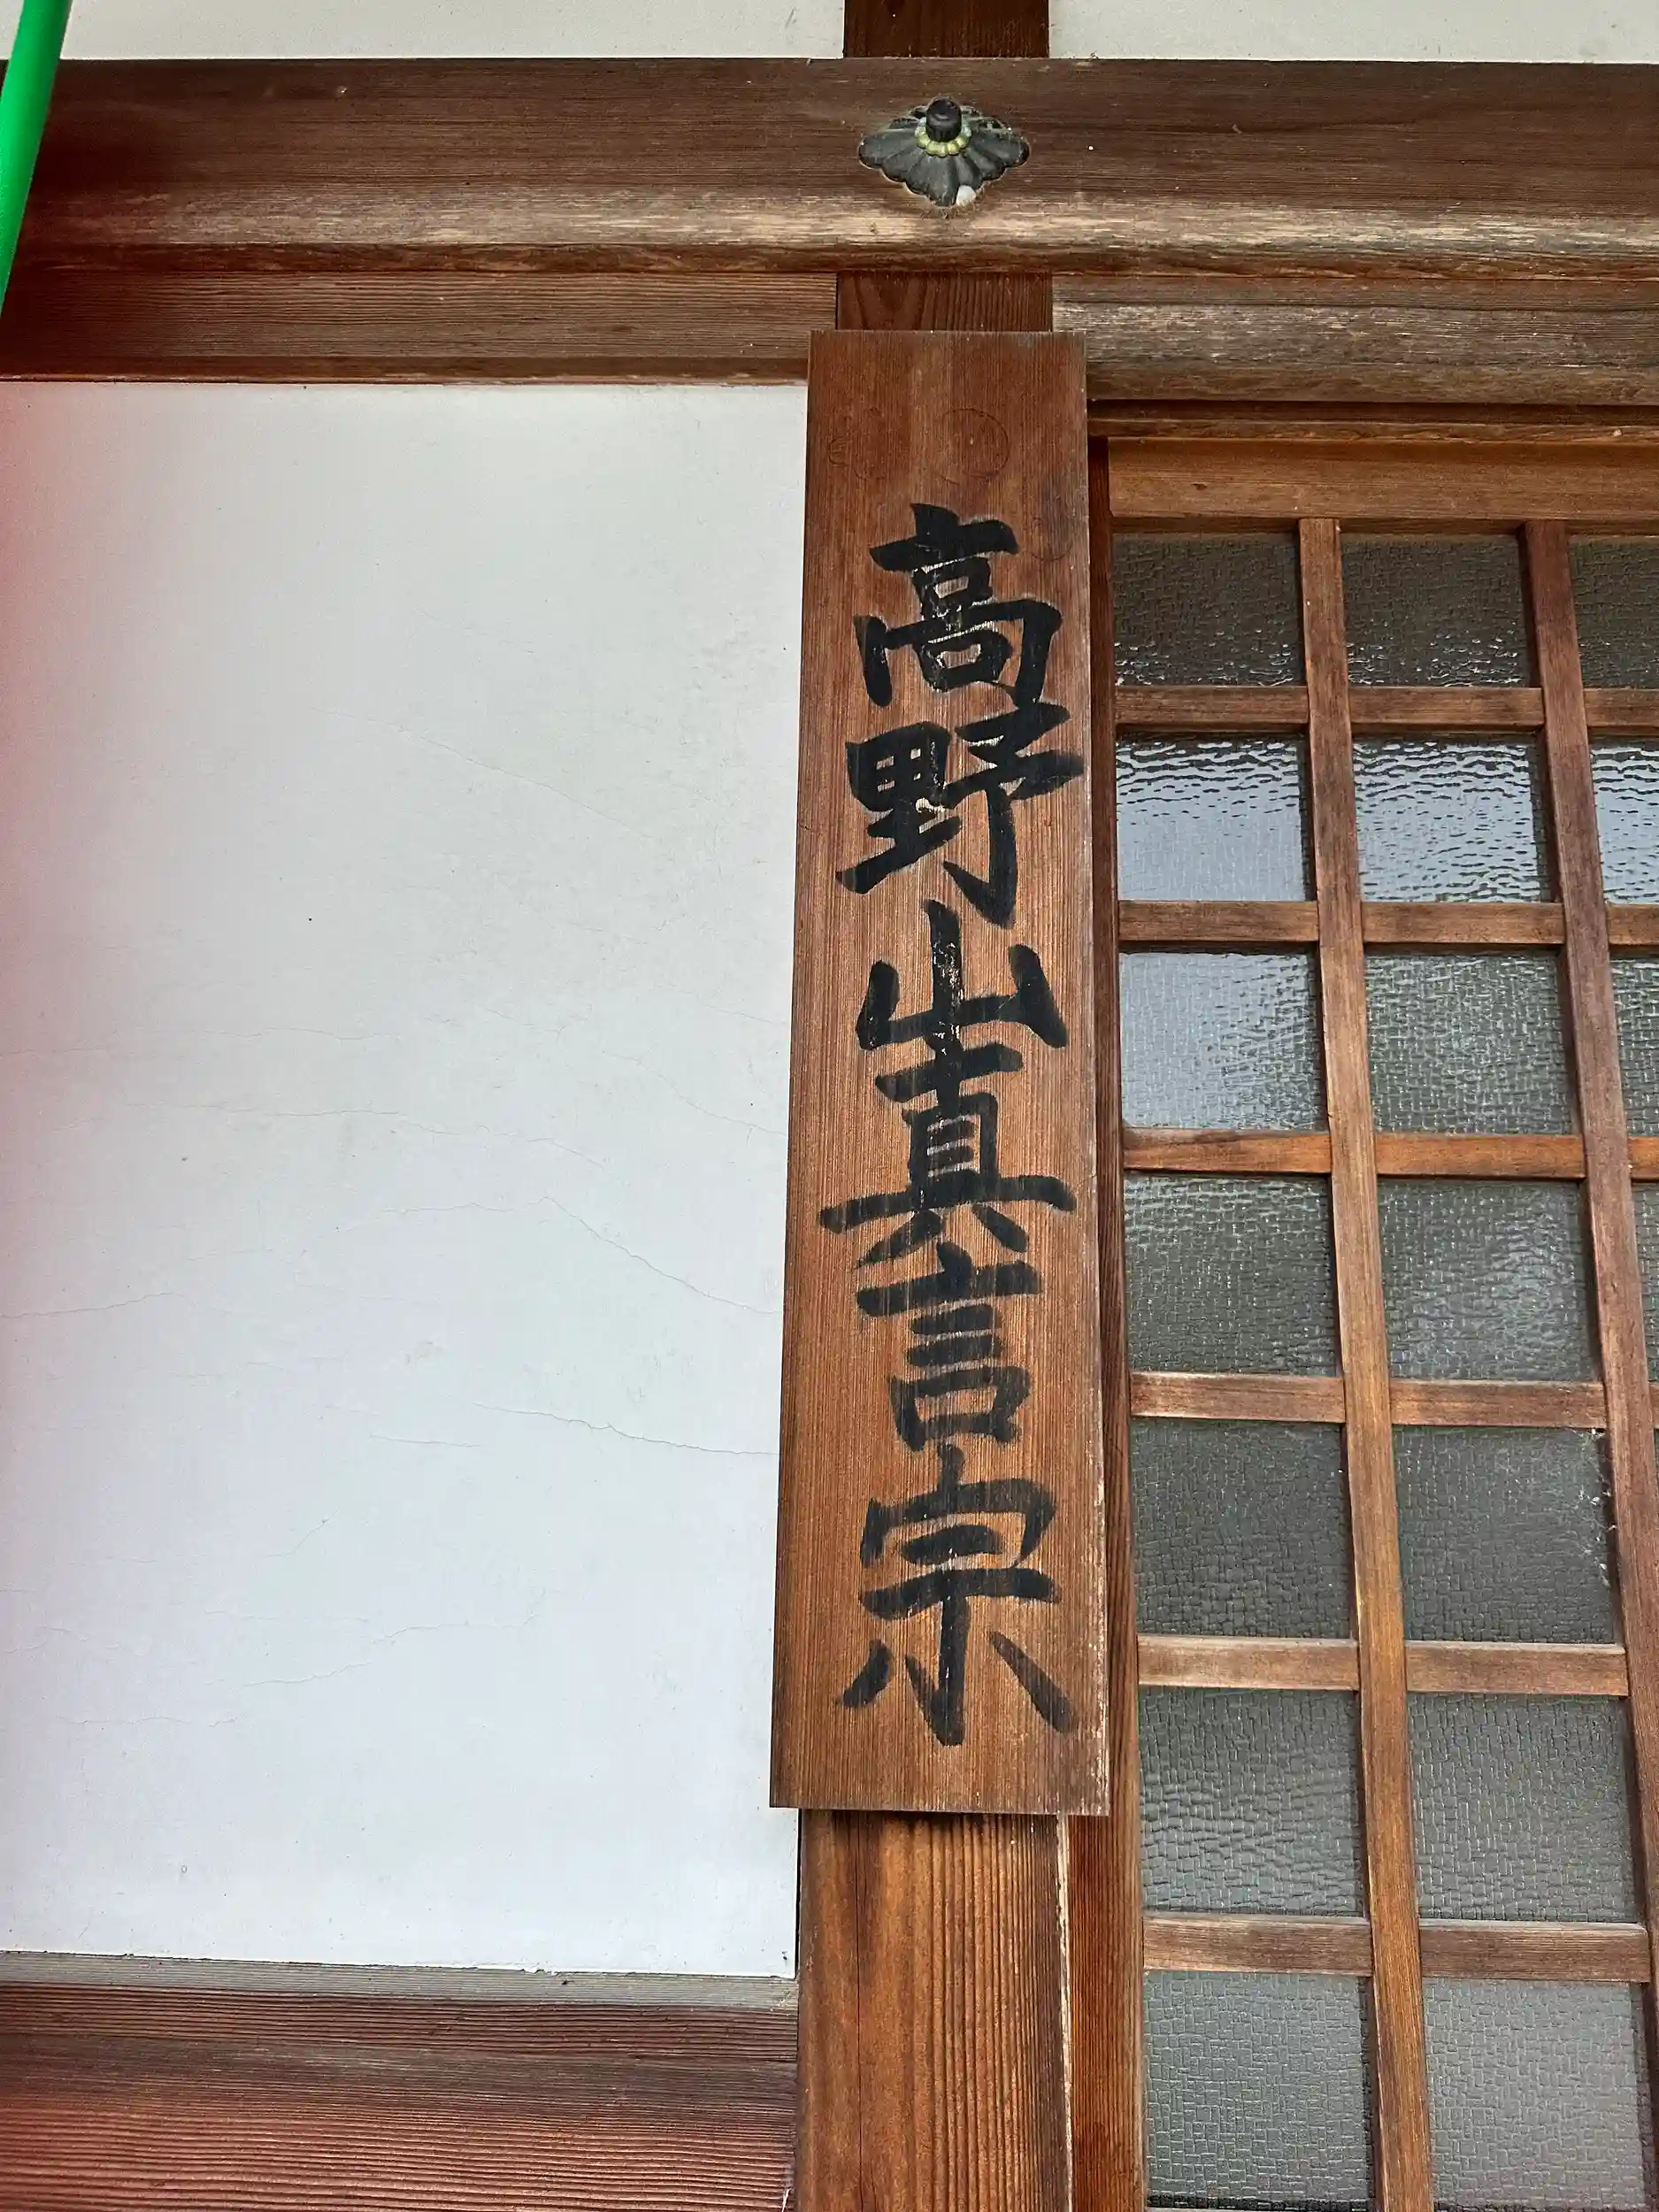 高野山真言宗